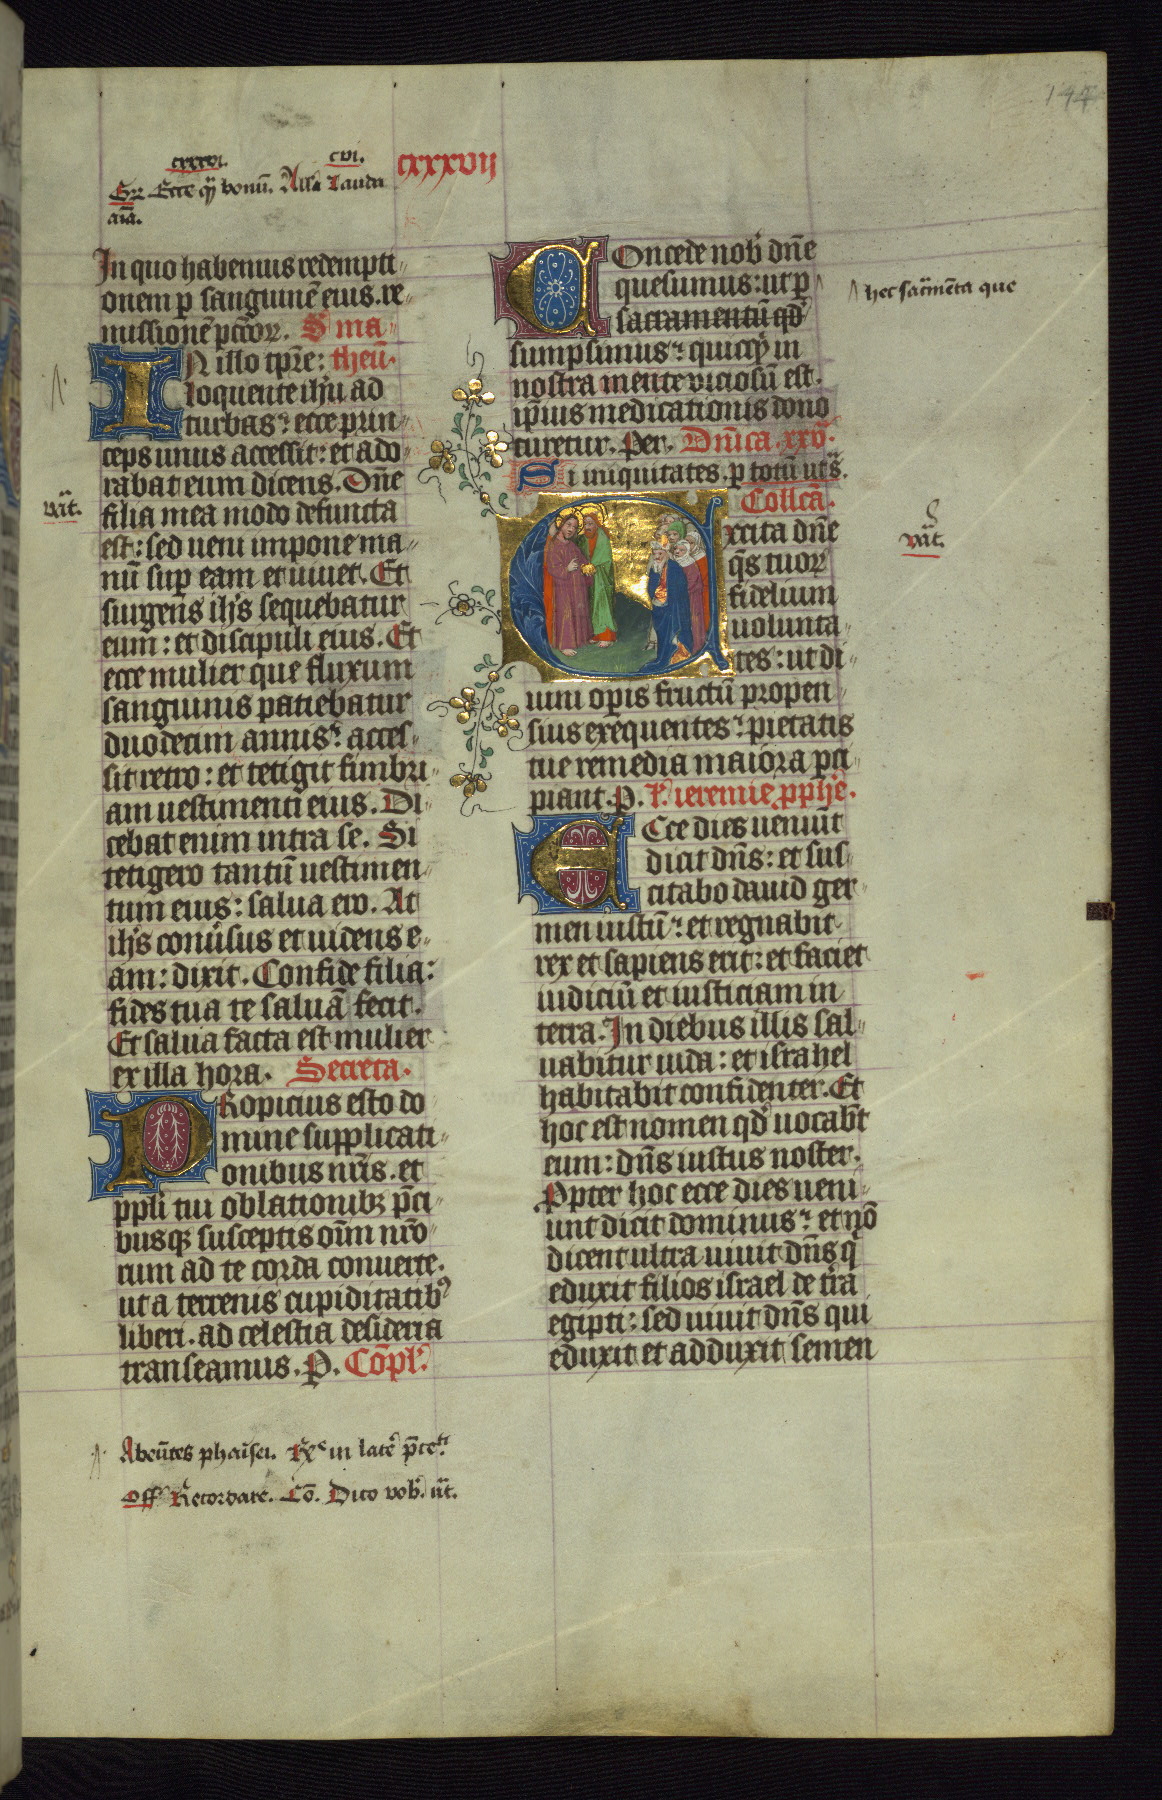 147
cxxxvi. cvi. cxxxvii
Gr̄ Ecce q̄ bonū. All̄a Lauda
aīa.
In quo habemus redempti
onem p sanguinē eius. re
missionē pctōꝝ. S ma
IN illo tpr̄e: theū.
loquente ihū ad
turbas: ecce prin
ceps unus accessit: et ado
rabat eum dicens. Dn̄e
filia mea modo defuncta
est: sed ueni impone ma
nū sup eam et uiuet. Et
surgens ihs̄ sequebatur
eum: et discipuli eius. Et
ecce mulier que fluxum
sanguinis patiebatur
duodecim annis: acces
sit retro: et tetigit fimbri
am uestimenti eius. Di
cebat enim intra se. Si
tetigero tantū uestimen
tum eius: salua ero. At
ihs̄ conuīsus et uidens e
am: dixit. Confide filia:
fides tua te saluā fecit.
Et salua facta est mulier
ex illa hora. Secreta.
PRopicius esto do
mine supplicati
onibus nr̄is. et
ppli tui oblationibꝫ p̄ci
busqꝫ susceptis oīm nr̄o
rum ad te corda conuerte.
ut a terrenis cupiditatibꝰ
liberi. ad celestia desideria
transeamus. P. Cōpl̄.
Abeūtes pharisei.
Off Recordare. Cō. Dico vob̄. ūt.
vāt.
COncede nob̄ dn̄e
quesumus: ut p
hec sac̄menta que
sacramentū qd̄
sumpsimus: quicq̄ in
nostra mente uiciosū est.
ip̄ius medicationis dono
curetur. Per. Dn̄ica. xxv.
Si iniquitates. p totū ut s̄.
Collcā.
Excita dn̄e
qs̄ tuoꝝ
fidelium
uolunta
tes: ut di
uini op̄is fructū propen
sius exequentes: pietatis
tue remedia maiora p̄ci
piant. P. L̄. ieremie pph̄e.
vāt.
ECce dies ueniūt
dicit dn̄s: et sus
citabo dauid ger
men iustū: et regnabit
rex et sapiens erit: et faciet
iudiciū et iusticiam in
terra. In diebus illis sal
uabitur iuda: et israhel
habitabit confidenter. Et
hoc est nomen qd̄ uocabt̄
eum: dn̄s iustus noster.
Ppter hoc ecce dies ueni
unt dicit dominus: et nō
dicent ultra uiuit dn̄s q̄
eduxit filios israel de tr̄a
egipti: sed uiuit dn̄s qui
eduxit et adduxit semen